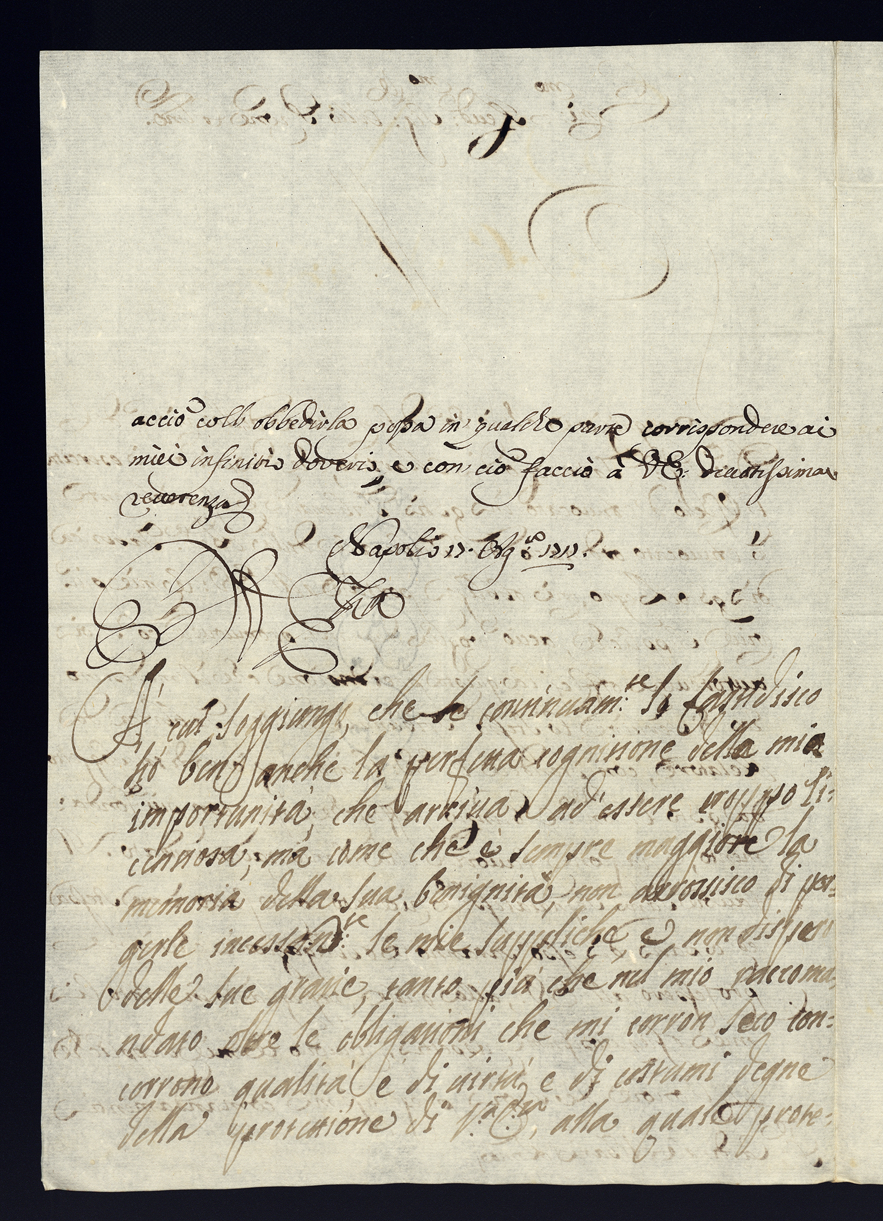 acciò coll'obbedirla possa in qualche parte corrispondere ai
miei infiniti doveri, e con ciò faccio à V.E. devotissima
reverenza
Napoli 17. Ag.to 1717.
A cui soggiungo, che se continuam.te la fastidisco
hò ben anche la perfetta cognitione della mia
importunità, che arriva ad essere troppo li=
centiosa; mà come che è sempre maggiore la
memoria della sua benignità, non arrossisco di por=
gerle incessan.te le mie suppliche e non disperi
delle sue gratie, tanto più che nel mio raccoma=
ndato oltre le obligationi che mi corron seco con=
corrono qualità e di virtù e di costumi degne
della protetione di V.E., alla quale prote=